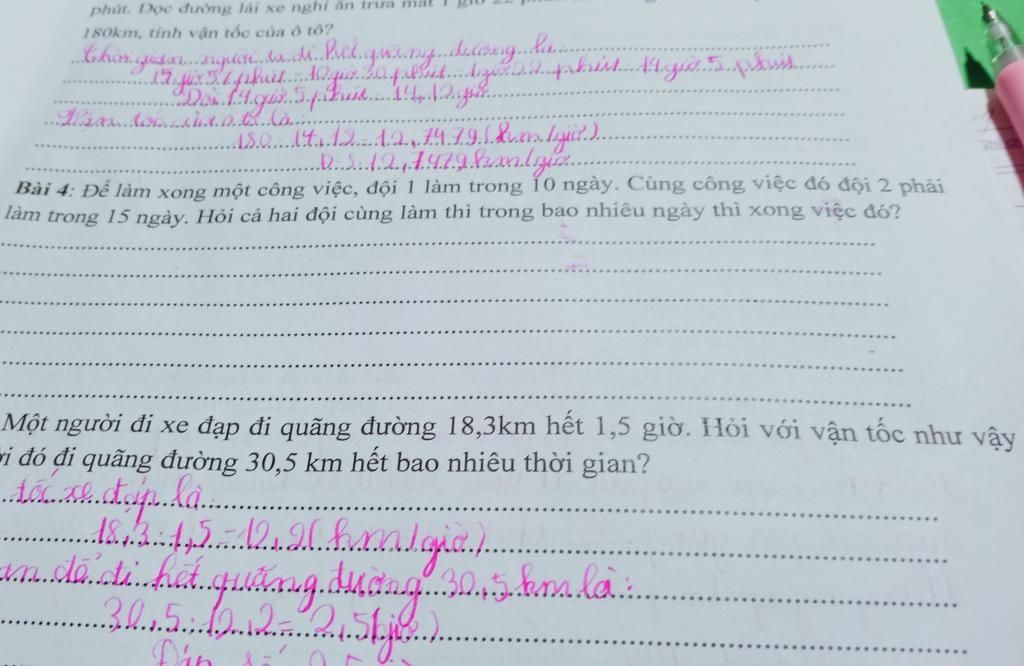 phút. Dọc đường lái xe nghỉ ăn trưa mất 1 giờ 22
180km, tính vận tốc của ô tô?
Thời gian người ta đi hết quãng đường là:
17 giờ 57 phút - 10 giờ 30 phút - 1 giờ 22 phút = 14 giờ 5 phút
Đổi 14 giờ 5 phút = 14,12 giờ
Vận tốc của ô tô là:
180 : 14,12 = 12,7479 (km/giờ)
Đ-S: 12,7479 km/giờ
Bài 4: Để làm xong một công việc, đội 1 làm trong 10 ngày. Cùng công việc đó đội 2 phải
làm trong 15 ngày. Hỏi cả hai đội cùng làm thì trong bao nhiêu ngày thì xong việc đó?
Một người đi xe đạp đi quãng đường 18,3km hết 1,5 giờ. Hỏi với vận tốc như vậy
đó đi quãng đường 30,5 km hết bao nhiêu thời gian?
tốc xe đạp là:
18,3 : 1,5 = 12,2 (km/giờ)
để đi hết quãng đường 30,5 km là:
30,5 : 12,2 = 2,5 (giờ)